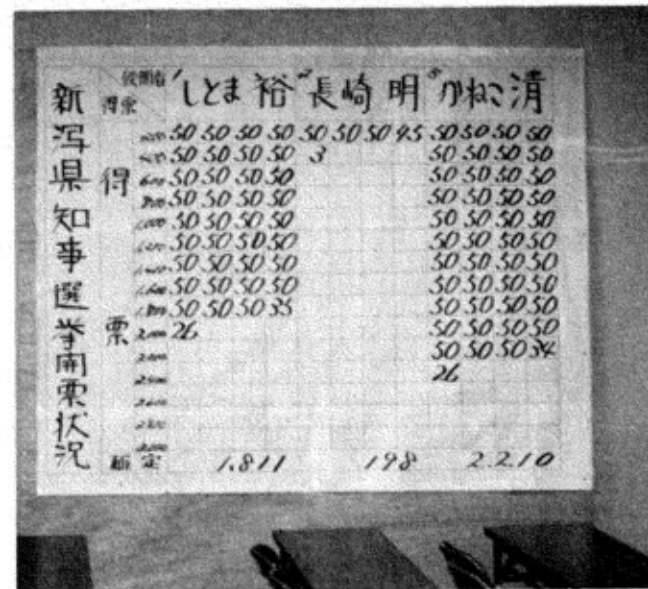 新泻県知事選挙開票状況
候補者
得票
1 しとま 裕 2 長崎 明 3 かねこ 清
得票
50 50 50 50 50 50 50 45 50 50 50 50
50 50 50 50 3 50 50 50 50
50 50 50 50 50 50 50 50
50 50 50 50 50 50 50 50
50 50 50 50 50 50 50 50
50 50 50 50 50 50 50 50
50 50 50 50 50 50 50 50
50 50 50 50 50 50 50 50
50 50 50 35 50 50 50 50
26 50 50 50 50
50 50 50 34
26
確定 1.811 198 2.210